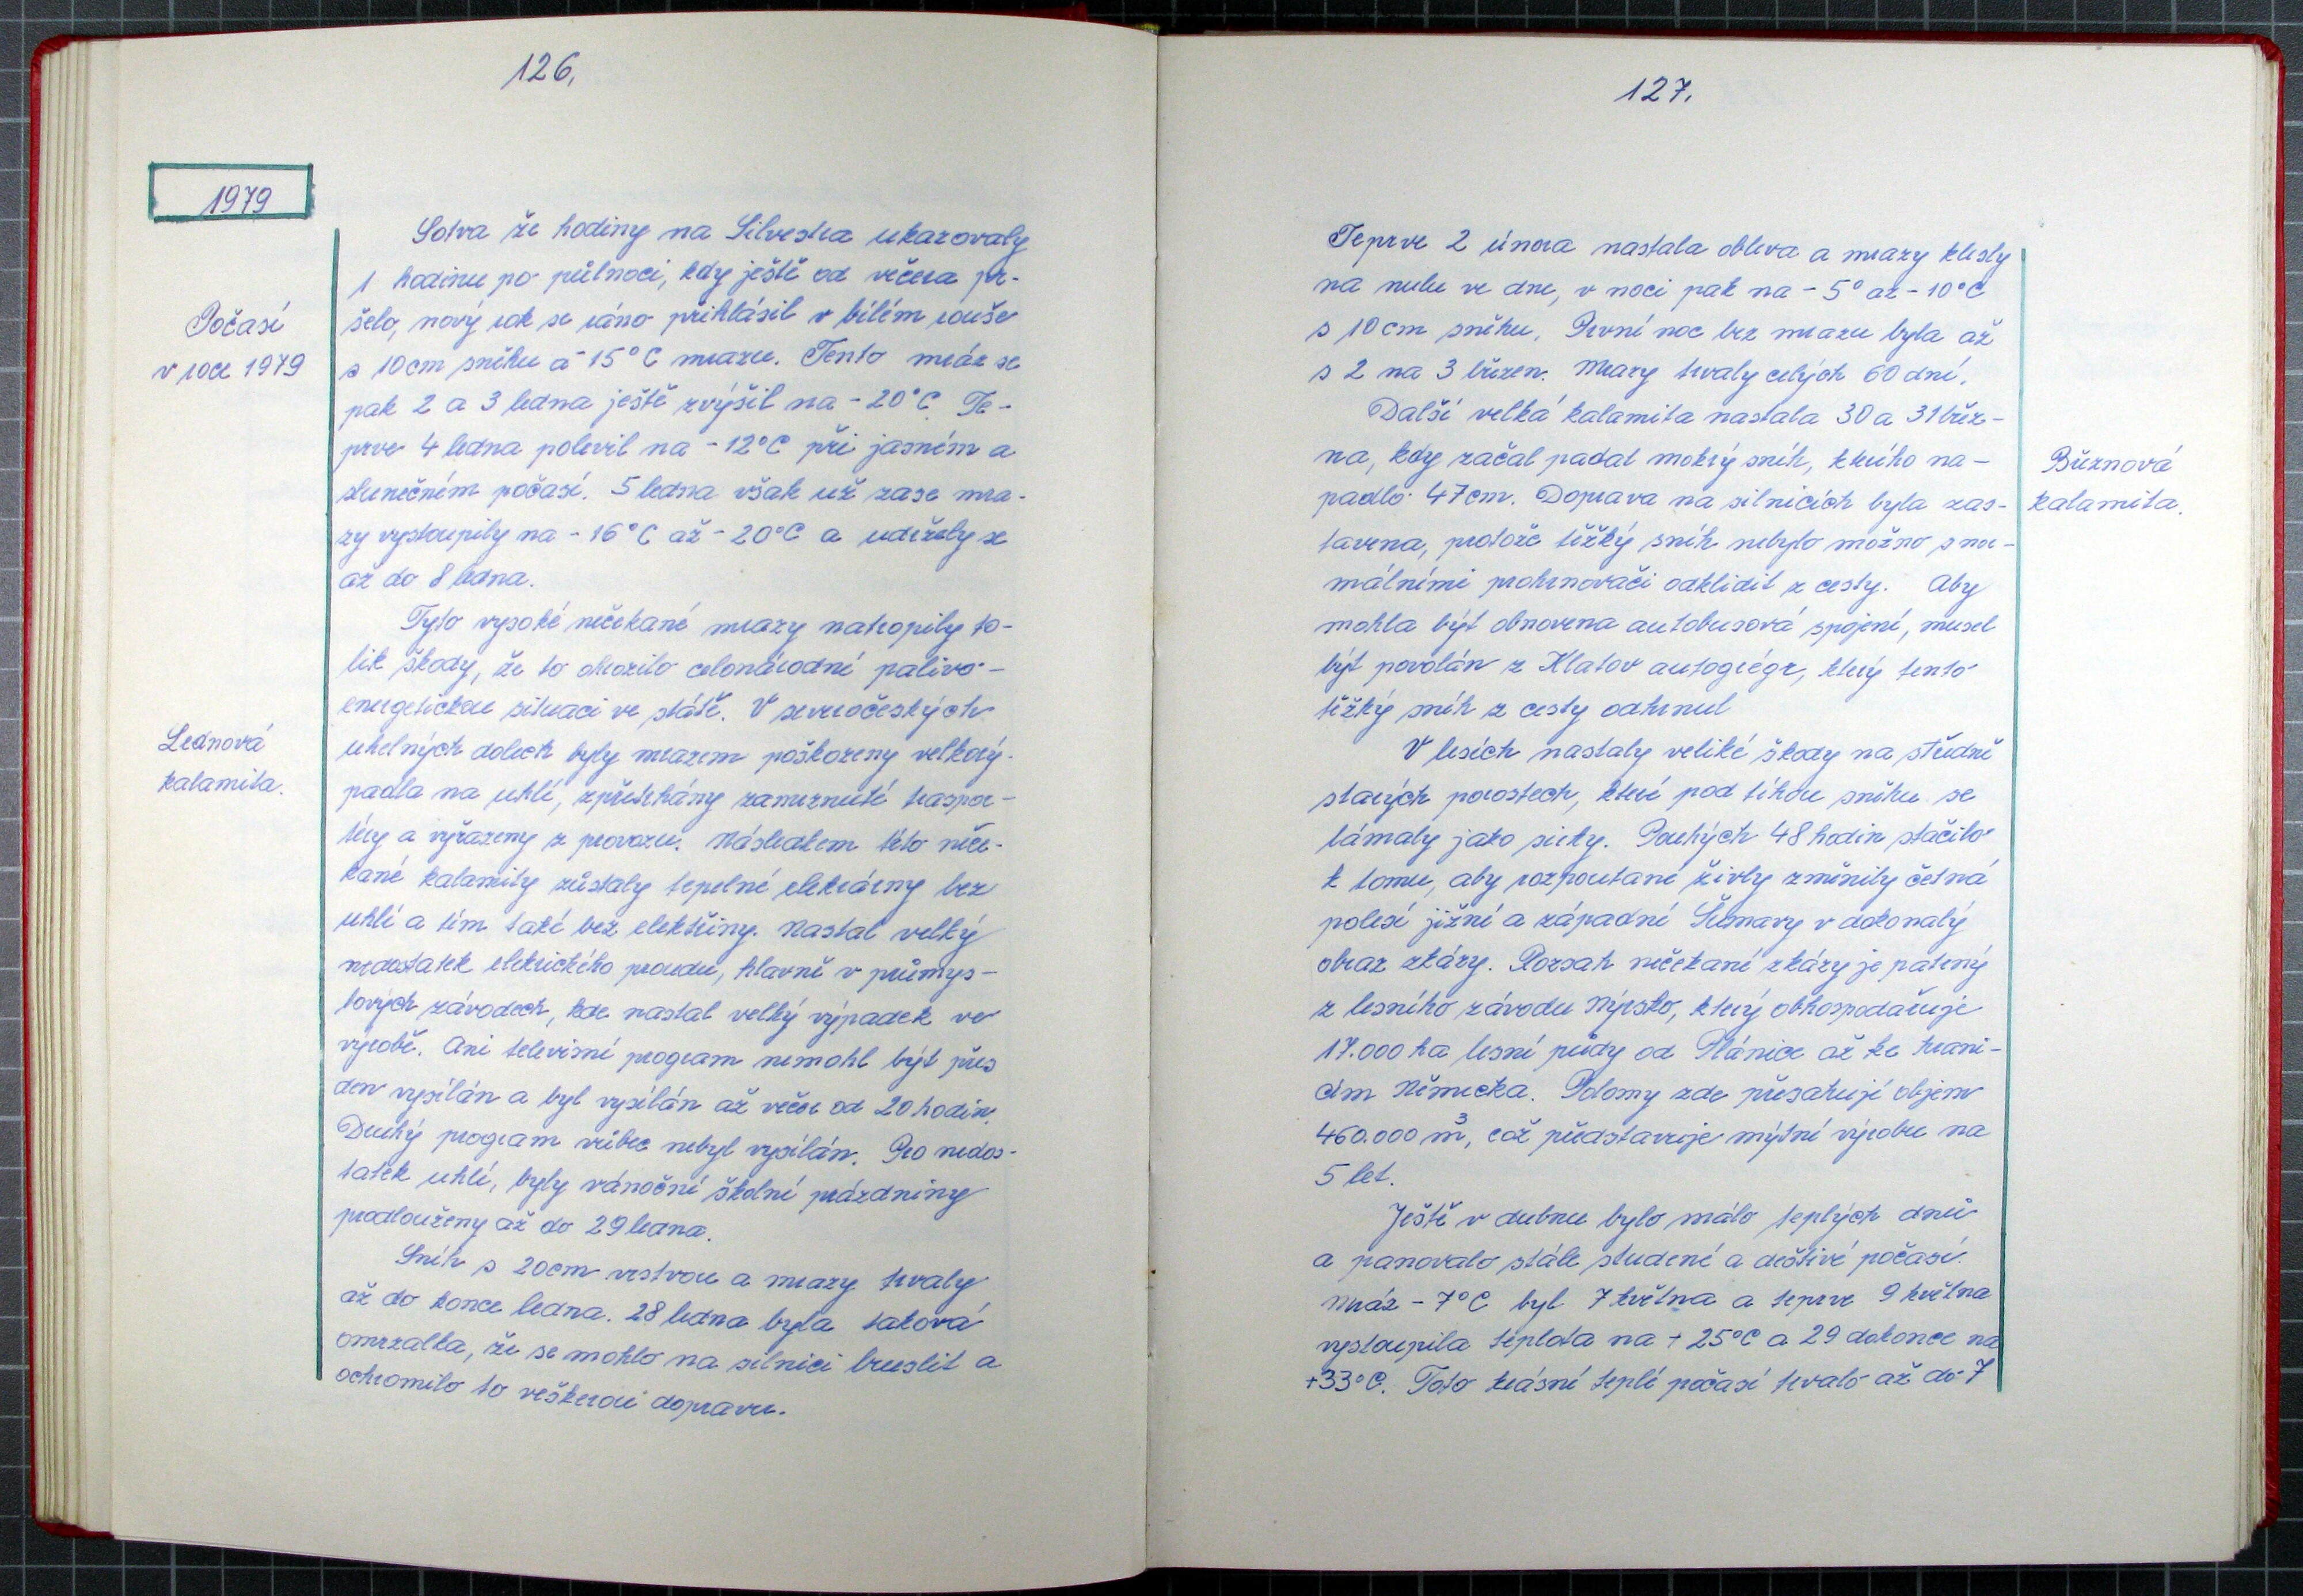 126.
1979
Sotva že hodiny na Silvestra ukazovaly
1 hodinu po půlnoci, kdy ještě od večera pr-
šelo, nový rok se ráno přihlásil v bílém rouše
Počasí
v roce 1979
s 10cm sněhu a -15°C mrazu. Tento mráz se
pak 2 a 3 ledna ještě zvýšil na -20°C. Te-
prve 4 ledna polevil na -12°C při jasném a
slunečném počasí. 5 ledna však už zase mra-
zy vystoupily na -16°C až -20°C a udržely se
až do 8 ledna.
Tyto vysoké nečekané mrazy natropily to-
lik škody, že to ohrozilo celonárodní palivo-
energetickou situaci ve státě. V severočeských
Lednová
kalamita.
uhelných dolech byly mrazem poškozeny velkorý-
padla na uhlí, zpřetrhány zamrznuté traspor-
téry a vyřazeny z provozu. Následkem této neče-
kané kalamity zůstaly tepelné elektrárny bez
uhlí a tím také bez elektřiny. Nastal velký
nedostatek elektrického proudu, hlavně v průmys-
lových závodech, kde nastal velký výpadek ve
výrobě. Ani televisní program nemohl být přes
den vysílán a byl vysílán až večer od 20 hodin.
Druhý program vůbec nebyl vysílán. Pro nedos-
tatek uhlí, byly vánoční školní prázdniny
prodlouženy až do 29 ledna.
Sníh s 20cm vrstvou a mrazy trvaly
až do konce ledna. 28 ledna byla taková
omrzalka, že se mohlo na silnici bruslit a
ochromilo to veškerou dopravu.
127.
Teprve 2 února nastala obleva a mrazy klesly
na nulu ve dne, v noci pak na -5° až -10°C
s 10cm sněhu. První noc bez mrazu byla až
s 2 na 3 březen. Mrazy trvaly celých 60 dní.
Další velká kalamita nastala 30 a 31 břez-
na, kdy začal padat mokrý sníh, kterého na-
padlo 47cm. Doprava na silnicích byla zas-
Březnová
kalamita.
tavena, protože těžký sníh nebylo možno s nor-
málními prohrnovači odklidit z cesty. Aby
mohla být obnovena autobusová spojení, musel
být povolán z Klatov autogrégr, který tento
těžký sníh z cesty odhrnul
V lesích nastaly veliké škody na středně
starých porostech, které pod tíhou sněhu se
lámaly jako sirky. Pouhých 48 hodin stačilo
k tomu, aby rozpoutané živly změnily četná
polesí jižní a západní Šumavy v dokonalý
obraz zkázy. Rozsah nečekané zkázy je patrný
z lesního závodu Nýrsko, který obhospodařuje
17.000 ha lesní půdy od Plánice až ke hrani-
cím Německa. Polomy zde přesahují objem
460.000 m³, což představuje mýtní výrobu na
5 let.
Ještě v dubnu bylo málo teplých dnů
a panovalo stále studené a deštivé počasí.
Mráz -7°C byl 7 května a teprve 9 května
vystoupila teplota na +25°C a 29 dokonce na
+33°C. Toto krásné teplé počasí trvalo až do 7